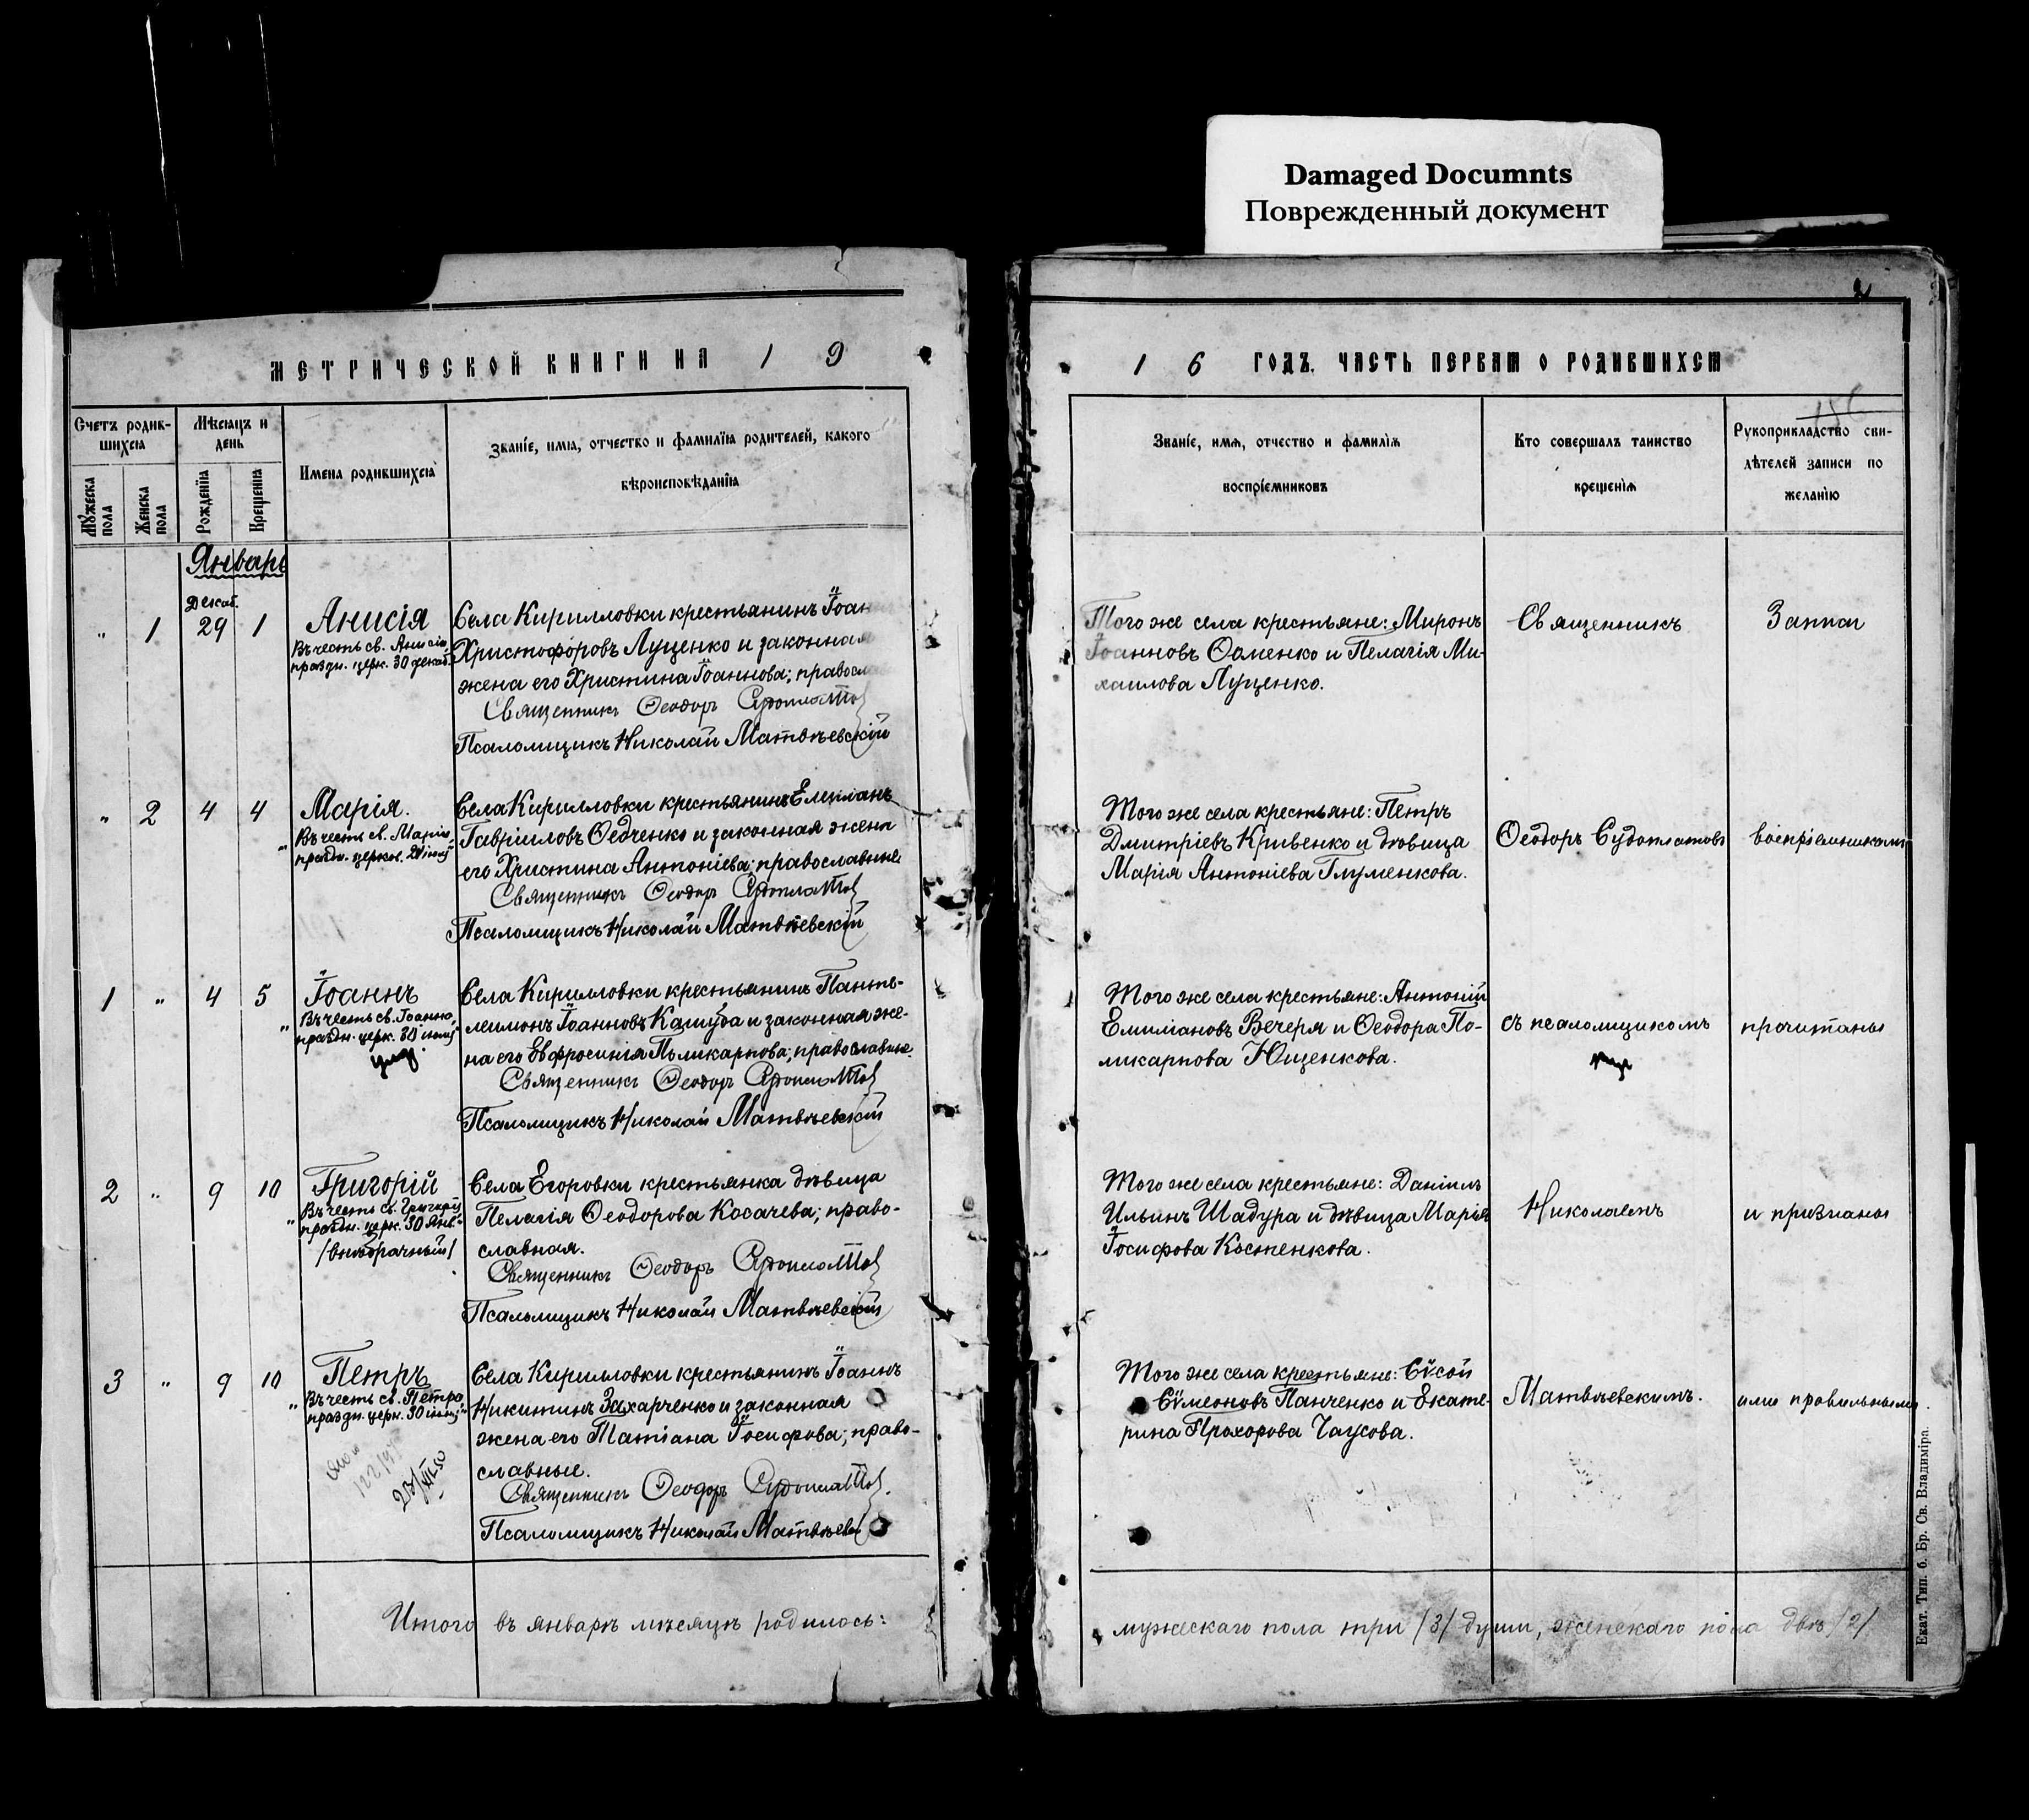 Damaged Documnts
Поврежденный документ
2
МЕТРИЧЕСКОЙ КНИГИ НА 1 9
1 6 ГОДЪ. ЧАСТЬ ПЕРВАЯ О РОДИВШИХСЯ
Счетъ родив-
шихся
Мѣсяцъ и
день
Мужеска
пола
Женска
пола
Рожденїя
Крещенїя
Имена родившихся
Званїе, имя, отчество и фамилїя родителей, какого
вѣроисповѣданїя
Званїе, имя, отчество и фамилїя
воспрїемниковъ
Кто совершалъ таинство
крещенїя
Рукоприкладство сви-
дѣтелей записи по
желанїю
Январь
Декаб.
" 1 29 1
Анисія
Въ честь св. Анисіи,
праздн. церк. 30 декаб.
Села Кирилловки крестьянинъ Іоан
Христофоровъ Луценко и законная
жена его Христина Іоаннова; правосл
Священникъ Ѳеодоръ Судоплатов
Псаломщикъ Николай Матвѣевскій
Того же села крестьяне: Миронъ
Іоанновъ Ѳоменко и Пелагія Ми-
хаилова Луценко.
Священникъ
Записи
" 2 4 4
Марія.
"Въ честь св. Маріи,
праздн. церков.
Села Кирилловки крестьянинъ Емиліанъ
Гавріиловъ Ѳедченко и законная жена
его Христина Антоніева; православные
Священникъ Ѳеодоръ Судоплатов
Псаломщикъ Николай Матвѣевскій
Того же села крестьяне: Петръ
Дмитріевъ Кривенко и дѣвица
Марія Антоніева Глуменкова.
Ѳеодоръ Судоплатовъ
воспріемниками
1 " 4 5
Іоаннъ
"Въ честь св. Іоанна,
праздн. церк.
Села Кирилловки крестьянинъ Панте-
леимонъ Іоанновъ Калиуба и законная же-
на его Евфросинія Поликарпова; православные.
Священникъ Ѳеодоръ Судоплатов
Псаломщикъ Николай Матвѣевскій
Того же села крестьяне: Антоній
Емиліановъ Вечеря и Ѳеодора По-
ликарпова Ющенкова.
съ псаломщикомъ
прочитаны
2 " 9 10
Григорій
"Въ честь св. Григорія,
праздн. церк. 30 янв."
/внѣбрачный/
Села Егоровки крестьянка дѣвица
Пелагія Ѳеодорова Косачева; право-
славная.
Священникъ Ѳеодоръ Судоплатов
Псаломщикъ Николай Матвѣевскій
Того же села крестьяне: Даніилъ
Ильинъ Шадура и дѣвица Марія
Іосифова Костенкова.
Николаемъ
и признаны
3 " 9 10
Петръ
"Въ честь св. Петра,
праздн. церк. 30 іюня"
Села Кирилловки крестьянинъ Іоаннъ
Никитинъ Захарченко и законная
жена его Татіана Іосифова; право-
славные.
Священникъ Ѳеодоръ Судоплатов.
Псаломщикъ Николай Матвѣев
Того же села крестьяне: Сѵсой
Сѵмеоновъ Панченко и Екате-
рина Прохорова Чаусова.
Матвѣевскимъ.
ими правильными.
Итого въ январѣ мѣсяцѣ родилось:
мужескаго пола три /3/ души, женскаго пола двѣ /2/
Екат. Тип. б. Бр. Св. Владиміра.